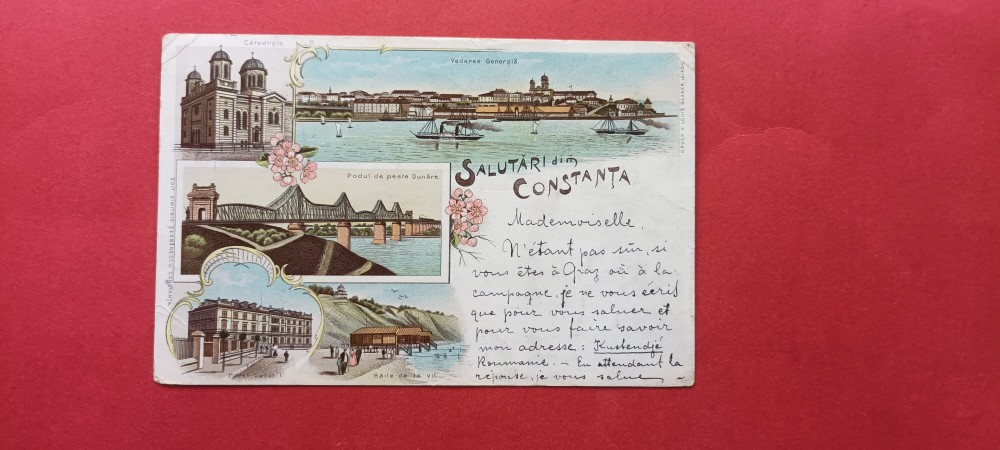 Catedrala
Vederea Generală
Podul de peste Dunăre
SALUTĂRI din
CONSTANȚA
Mademoiselle,
N'étant pas sûr, si
vous êtes à Graz où à la
campagne, je ne vous écris
que pour vous saluer et
pour vous faire savoir
mon adresse: Kustendjé
Roumanie. — En attendant la
réponse, je vous salue
Băile de la Vii